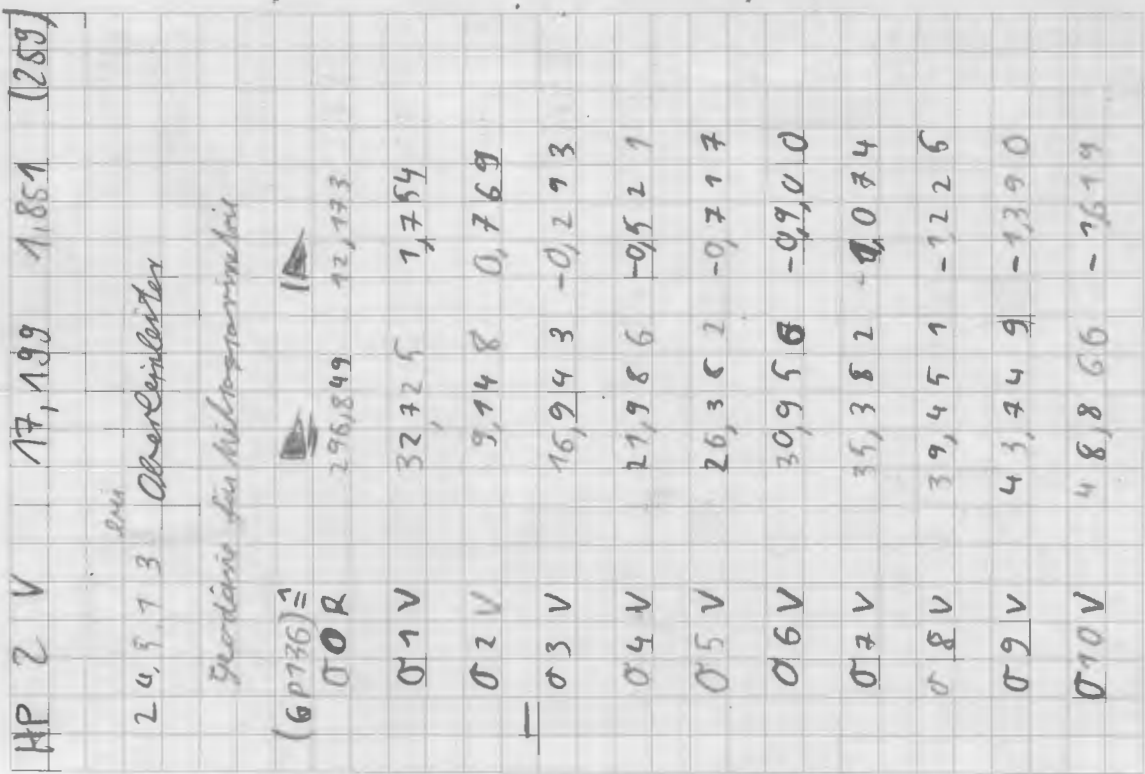 HP 2 V 17,199 1,851 (289)
24,9,13 bei Oberleinleiter
Geodäsie für
(GP136)≙
σ0R 296,849 12,173
σ1V 32,725 1,754
σ2V 9,148 0,769
σ3V 16,943 -0,293
σ4V 21,986 -0,521
σ5V 26,382 -0,717
σ6V 30,956 -0,900
σ7V 35,382 -1,074
σ8V 39,451 -1,225
σ9V 43,749 -1,390
σ10V 48,866 -1,619